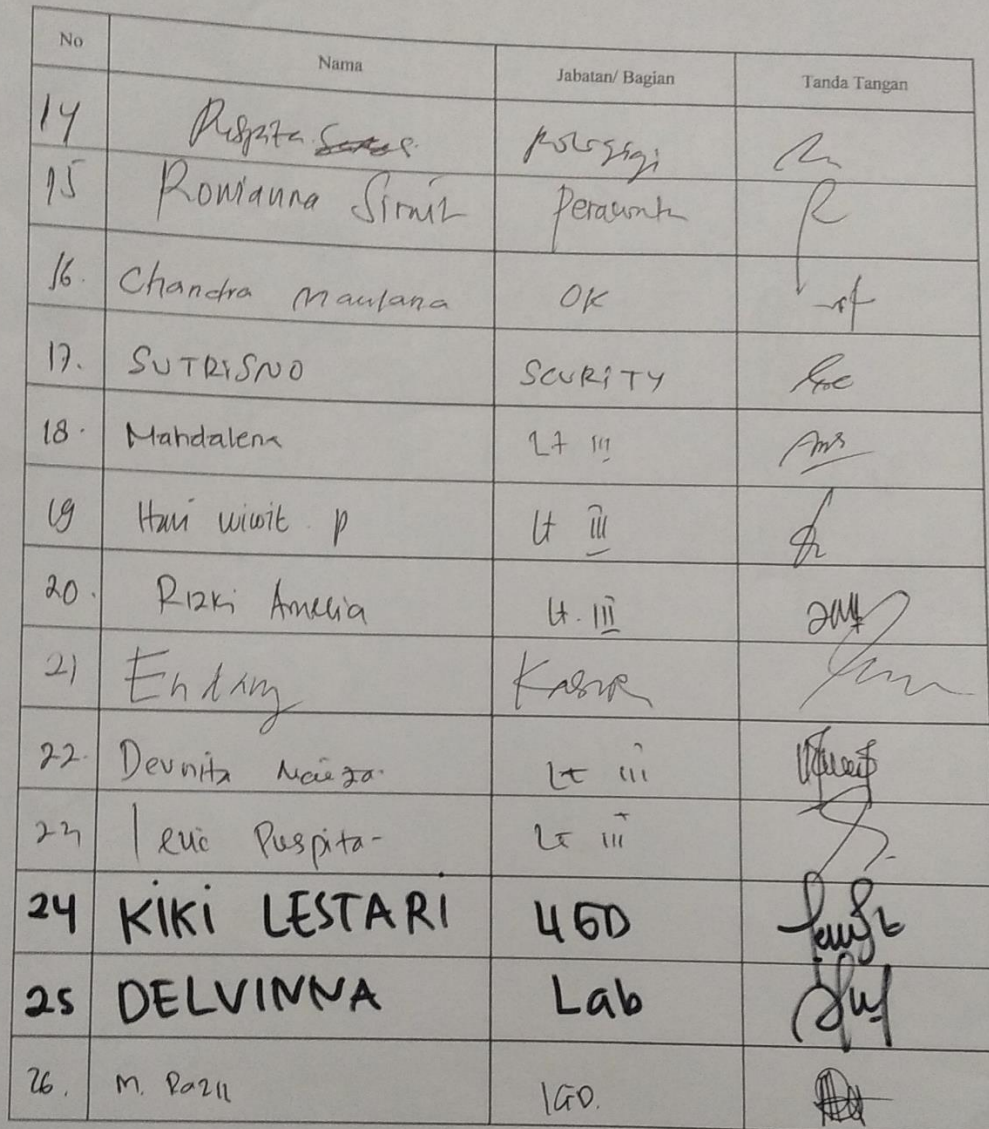 No Nama Jabatan/ Bagian Tanda Tangan
14 Puspita S. Poli gigi
15 Romianna Perawat
16. Chandra Maulana OK
17. SUTRISNO SCURITY
18. Mahdalena Lt III
19 Hari wiwit P Lt III
20. Rizki Amelia Lt. III
21 Endang Kasir
22. Devnita Lt III
23 Puspita Lt III
24 KIKI LESTARI UGD
25 DELVINNA Lab
26. M. Razil IGD.